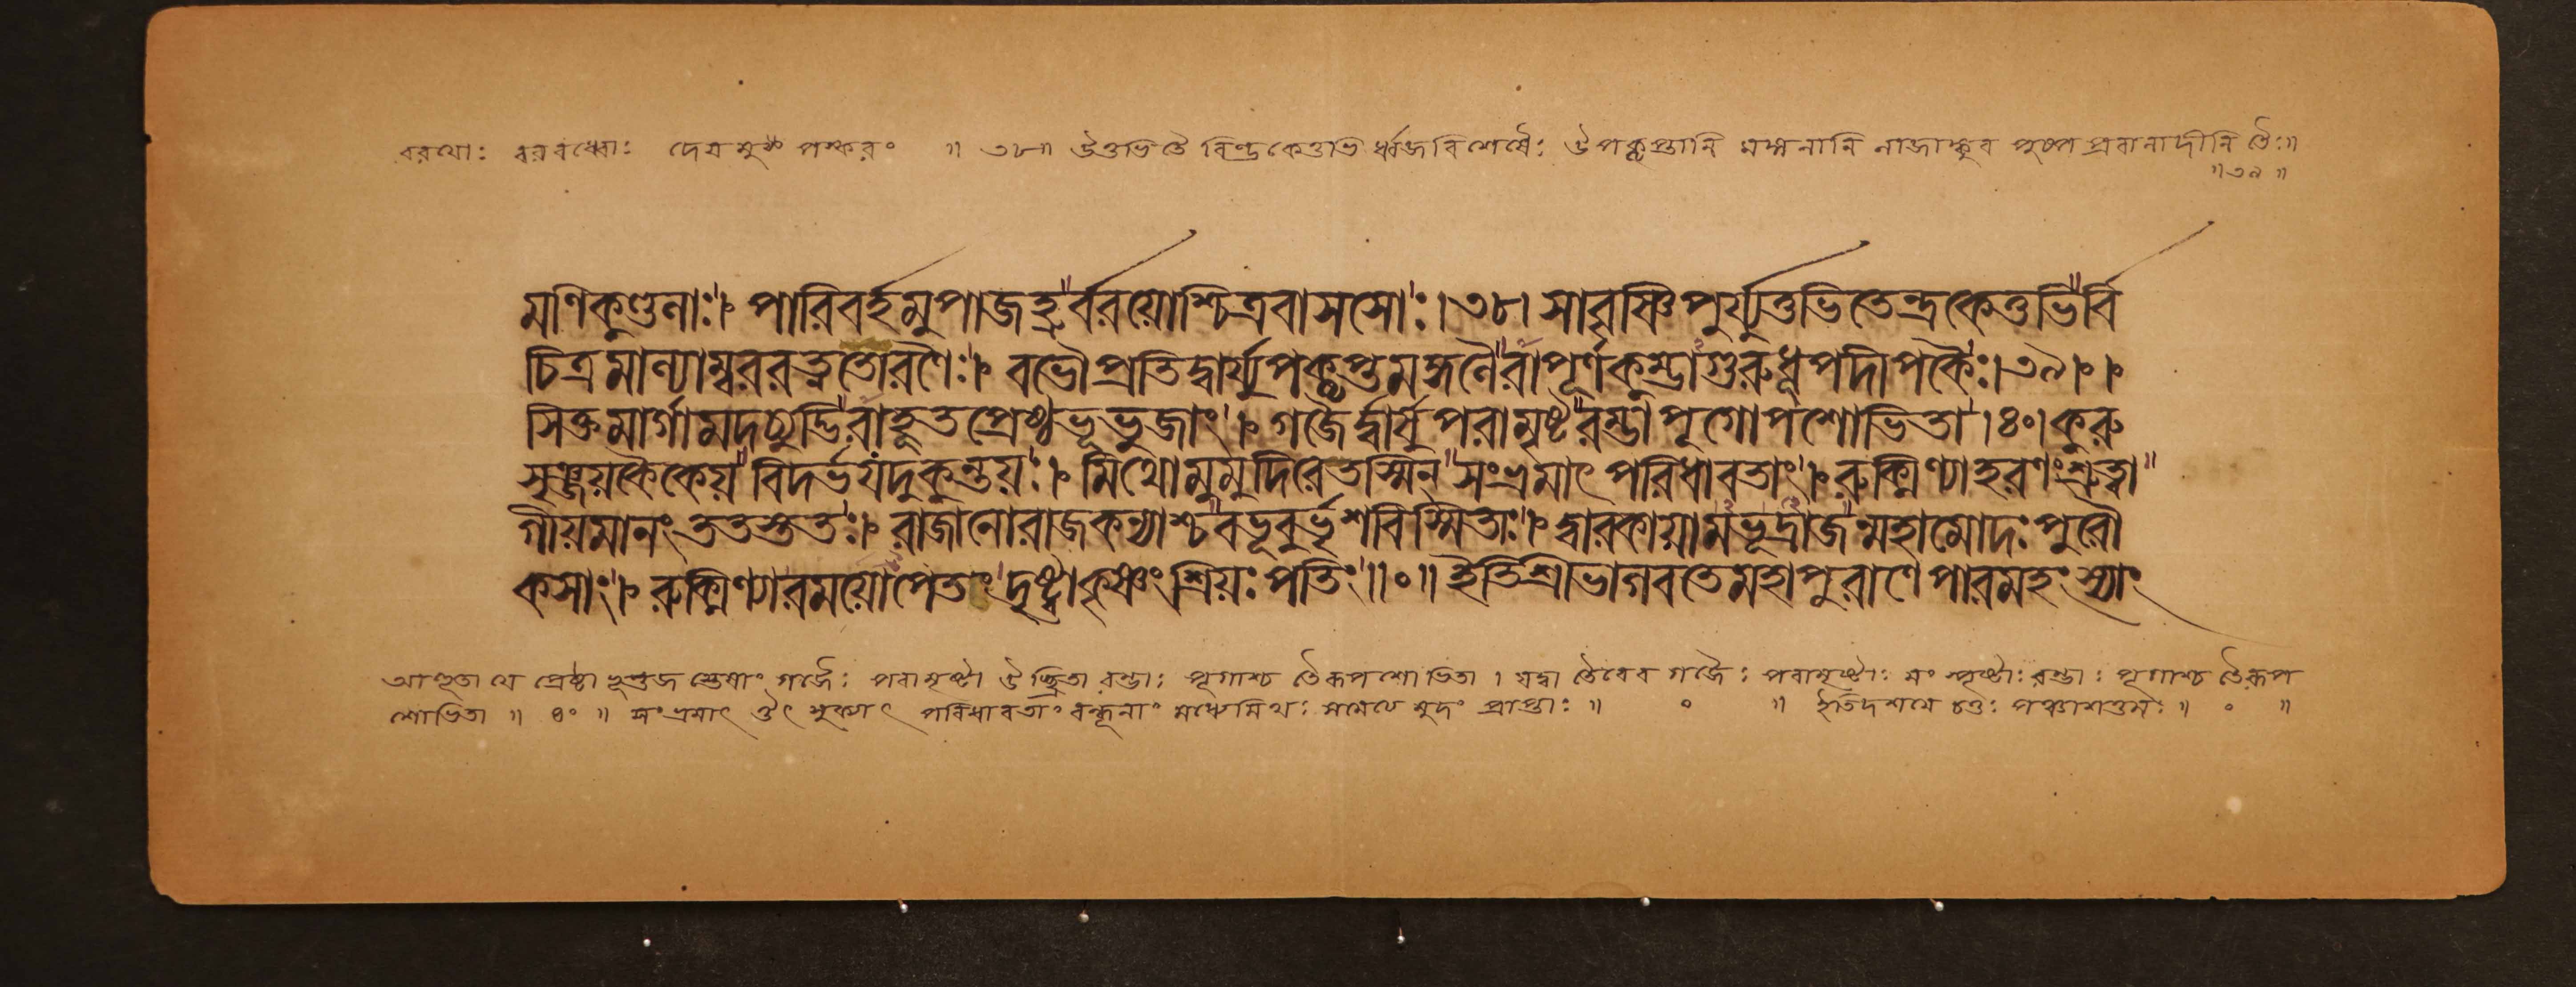 বরযোঃ বরবধ্বোঃ দেয়মুপস্করং ॥ ৩৮॥ উত্তভিতৈ রিন্দ্রকেতুভি র্ধ্বজবিশেষৈঃ উপকৢপ্তানি মঙ্গলানি লাজাঙ্কুর পুষ্প প্রবালাদীনি তৈঃ॥
॥৩৯॥
মণিকুণ্ডলাঃ। পারিবর্হমুপাজহ্রুর্বরয়োশ্চিত্রবাসসোঃ।৩৮। সাবৃষ্ণিপুর্য্যুত্তভিতেন্দ্রকেতুভির্বি
চিত্রমাল্যাম্বররত্নতোরণৈঃ। বভৌপ্রতিদ্বার্য্যুপকৢপ্তমঙ্গলৈরাপূর্ণকুম্ভাগুরুধূপদীপকৈঃ।৩৯।।
সিক্তমার্গামদচ্যুদ্ভিরাহূতপ্রেষ্ঠভূভুজাং। গজৈর্দ্বার্সুপরামৃষ্টরম্ভাপূগোপশোভিতা।৪০।কুরু
সৃঞ্জয়কৈকেয়বিদর্ভযদুকুন্তয়ঃ। মিথোমুমুদিরেতস্মিন্ সংভ্রমাৎ পরিধাবতাং। রুক্মিণ্যাহরণংশ্রুত্বা
গীয়মানং ততস্ততঃ। রাজানোরাজকন্যাশ্চবভূবুর্ভৃশবিস্মিতাঃ। দ্বারকায়ামভূদ্রাজন্মহামোদঃ পুরৌ
কসাং। রুক্মিণ্যারময়োপেতং দৃষ্ট্বাকৃষ্ণং শ্রিয়ঃ পতিং॥০॥ ইতিশ্রীভাগবতেমহাপুরাণে পারমহংস্যাং
আহূতা যে প্রেষ্ঠা ভূভুজ স্তেষাং গজৈঃ পরামৃষ্টা উচ্ছ্রিতা রম্ভাঃ পূগাশ্চ তৈরুপশোভিতা। যদ্বা তৈরেব গজৈঃ পরামৃষ্টাঃ সংস্পৃষ্টাঃ রম্ভাঃ পূগাশ্চ তৈরুপ
শোভিতা ॥ ৪০ ॥ সংভ্রমাৎ ঔৎসুক্যাৎ পরিধাবতাং বন্ধূনাং মধ্যেমিথঃ সমেত্য মুদং প্রাপ্তাঃ ॥ ০ ॥ ইতিদশমে চতুঃ পঞ্চাশত্তমঃ ॥ ০ ॥